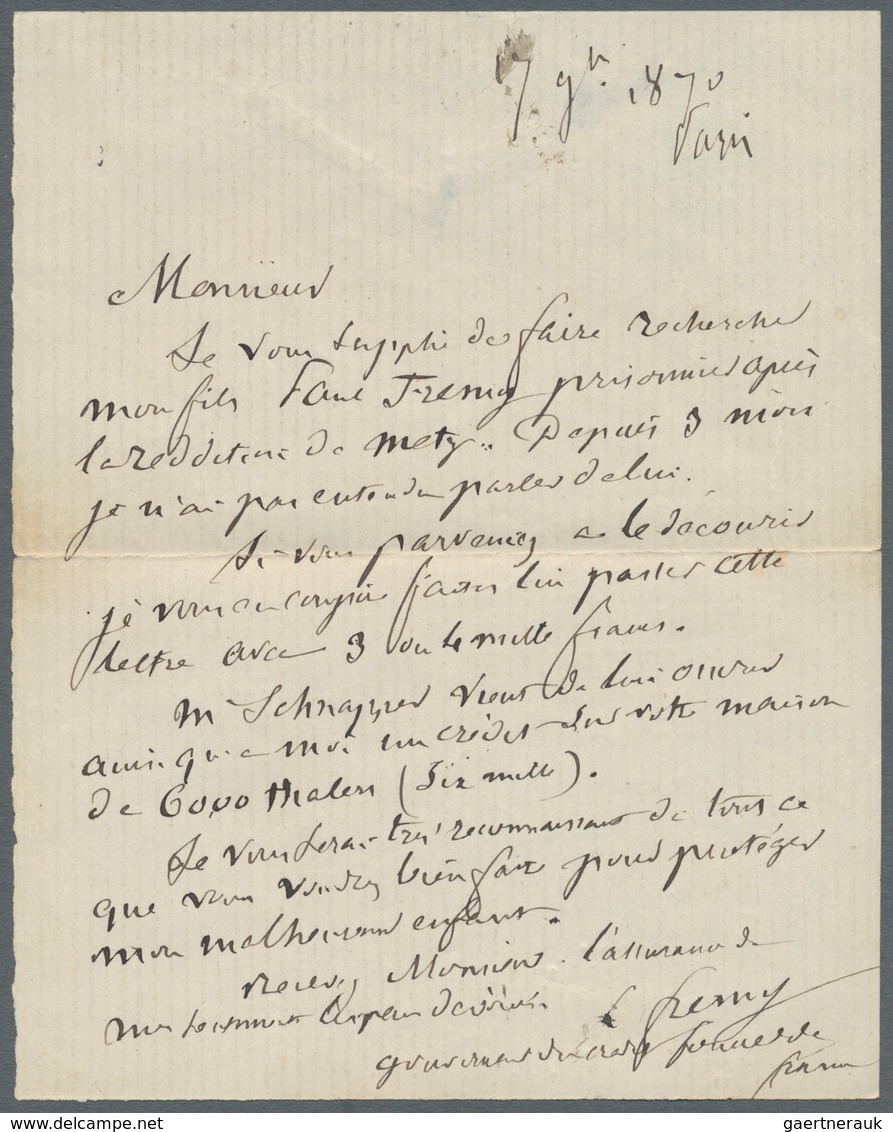 17 9bre 1870
Paris
Monsieur
Je vous supplie de faire rechercher
mon fils Paul Fremy prisonnier après
la reddition de Metz. Depuis 3 mois
je n'ai pas entendu parler de lui.
Si vous parvenez a le découvrir
je vous en conjure faites lui passer cette
lettre avec 3 ou 4 mille francs.
Mr Schnapper vient de lui ouvrir
ainsi qu'a moi un crédit sur votre maison
de 6000 thalers (Six mille).
Je vous serai très reconnaissant de tout ce
que vous voudrez bien faire pour protéger
mon malheureux enfant.
Recevez Monsieur l'assurance de
mes sentiments
L Fremy
gouverneur du credit foncier de
france
gaertnerauk